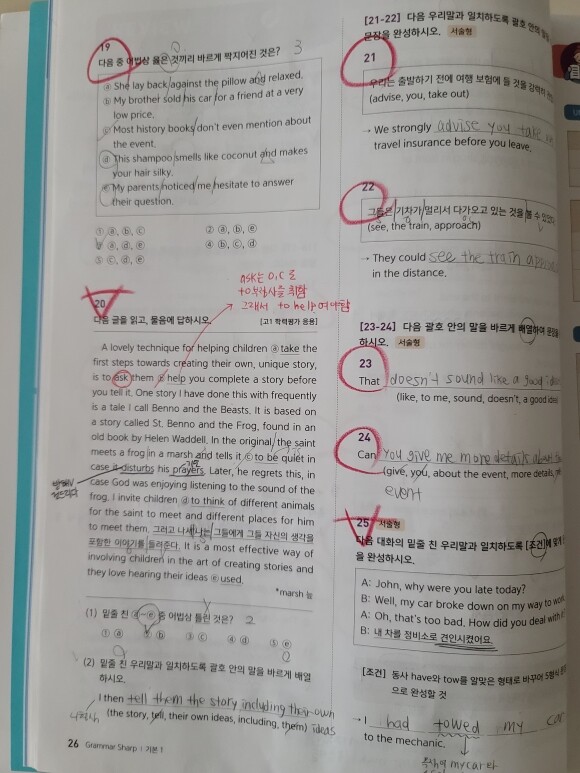 19
다음 중 어법상 옳은 것끼리 바르게 짝지어진 것은? 3
ⓐ She lay back against the pillow and relaxed.
ⓑ My brother sold his car for a friend at a very
low price.
ⓒ Most history books don't even mention about
the event.
ⓓ This shampoo smells like coconut and makes
your hair silky.
ⓔ My parents noticed me hesitate to answer
their question.
① ⓐ, ⓑ, ⓒ ② ⓐ, ⓑ, ⓔ
ⓐ, ⓓ, ⓔ ④ ⓑ, ⓒ, ⓓ
⑤ ⓒ, ⓓ, ⓔ
ASK는 O,C로
to부정사를 취함
그래서 to help여야함
20
다음 글을 읽고, 물음에 답하시오. [고1 학력평가 응용]
A lovely technique for helping children ⓐ take the
first steps towards creating their own, unique story,
is to ask them ⓑ help you complete a story before
you tell it. One story I have done this with frequently
is a tale I call Benno and the Beasts. It is based on
a story called St. Benno and the Frog, found in an
old book by Helen Waddell. In the original, the saint
meets a frog in a marsh and tells it ⓒ to be quiet in
case it disturbs his prayers. Later, he regrets this, in
case God was enjoying listening to the sound of the
frog. I invite children ⓓ to think of different animals
for the saint to meet and different places for him
to meet them. 그러고 나서 나는 그들에게 그들 자신의 생각을
포함한 이야기를 들려준다. It is a most effective way of
involving children in the art of creating stories and
they love hearing their ideas ⓔ used.
*marsh 늪
(1) 밑줄 친 ⓐ~ⓔ 중 어법상 틀린 것은? 2
① ⓐ ② ⓑ ③ ⓒ ④ ⓓ ⑤ ⓔ
(2) 밑줄 친 우리말과 일치하도록 괄호 안의 말을 바르게 배열
하시오.
I then tell them the story including their own
(the story, tell, their own ideas, including, them) ideas
26 Grammar Sharp | 기본 1
[21-22] 다음 우리말과 일치하도록 괄호 안의 말을
문장을 완성하시오. 서술형
21
우리는 출발하기 전에 여행 보험에 들 것을 강력히
(advise, you, take out)
→ We strongly advise you take
travel insurance before you leave.
22
그들은 기차가 멀리서 다가오고 있는 것을 볼 수
(see, the train, approach)
→ They could see the train
in the distance.
[23-24] 다음 괄호 안의 말을 바르게 배열하여 문장을
하시오. 서술형
23
That doesn't sound like a good
(like, to me, sound, doesn't, a good idea
24
Can you give me more details about
(give, you, about the event, more details,
event
25 서술형
다음 대화의 밑줄 친 우리말과 일치하도록 [조건]에 맞게
을 완성하시오.
A: John, why were you late today?
B: Well, my car broke down on my way to
A: Oh, that's too bad. How did you deal with
B: 내 차를 정비소로 견인시켰어요.
[조건] 동사 have와 tow를 알맞은 형태로 바꾸어 5형식
으로 완성할 것
→ I had towed my car
to the mechanic.